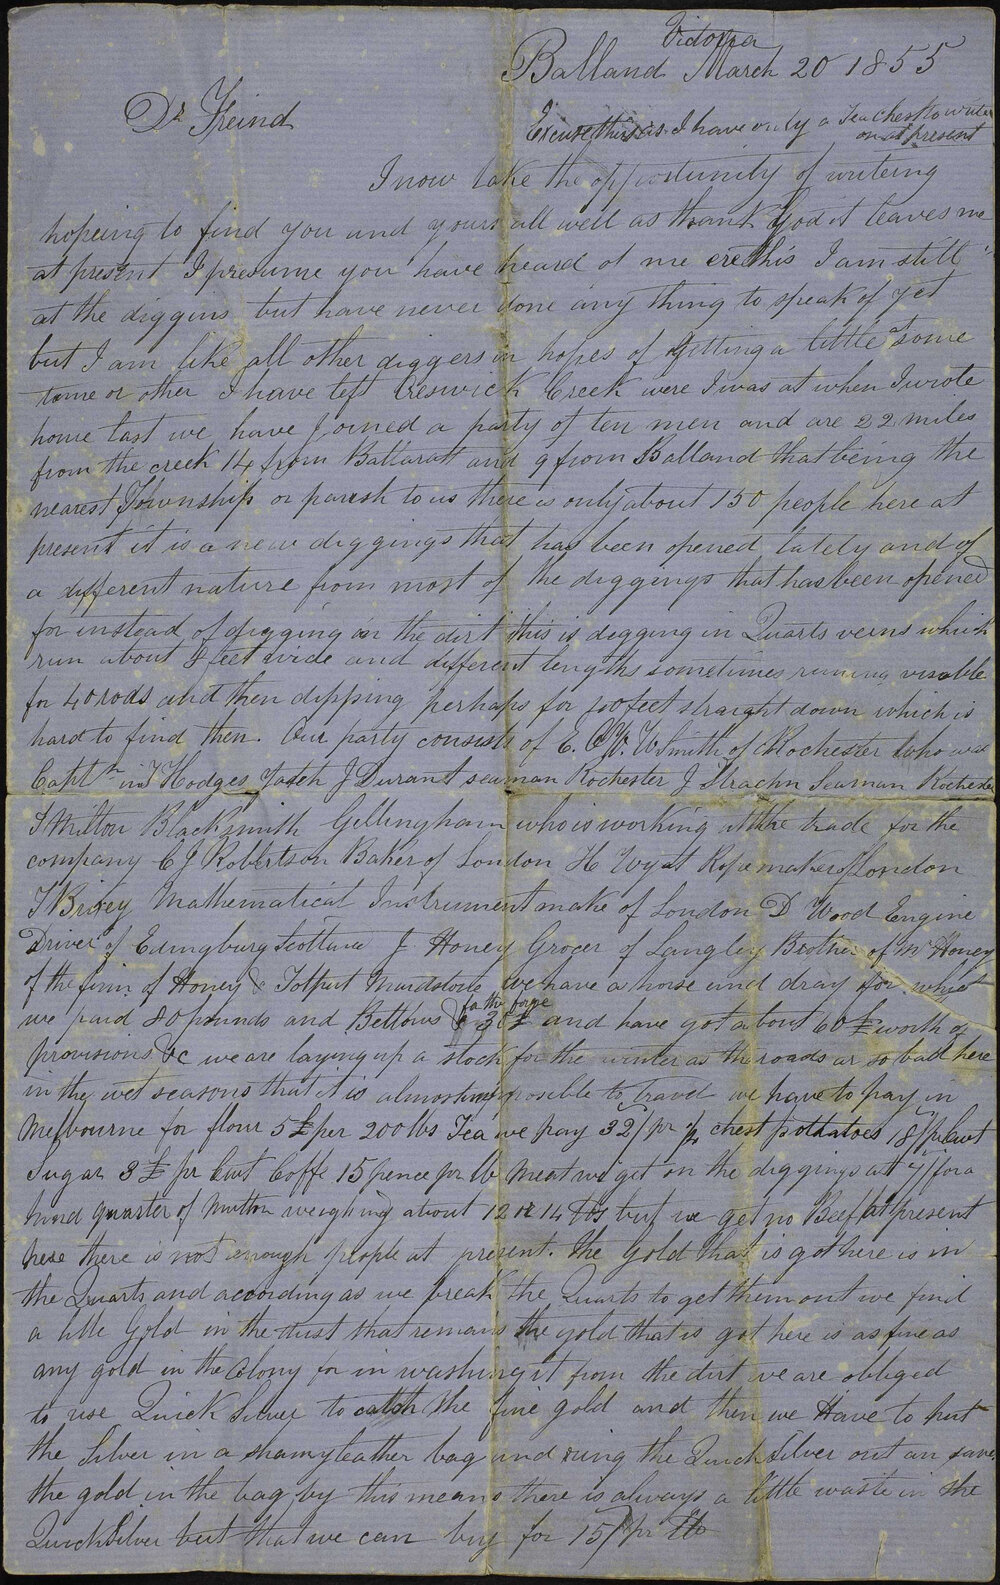 Victoria
Balland March 20 1855
Dr Freind
Excuse this as I have only a Tea chest to write
on at present
I now take the oppertunity of writeing
hopeing to find you and yours all well as thank God it leaves me
at present I presume you have heard of me ere this I am still
at the diggins but have never done any thing to speak of yet
but I am like all other diggers in hopes of getting a little some
time or other I have left Creswick Creek were I was at when I wrote
home last we have Joined a party of ten men and are 22 miles
from the creek 14 from Ballaratt and 9 from Balland that being the
nearest Township or parish to us there is only about 150 people here at
present it is a new diggings that has been opened lately and of
a different nature from most of the diggings that has been opened
for instead of digging in the dirt this is digging in Quarts veins which
run about 8 feet wide and different lengths sometimes runing visable
for 40 rods and then dipping perhaps for 100 feet straight down which is
hard to find then. Our party consists of E. W Smith of Rochester who was
Captn in Hodges Yatch J Durant seaman Rochester J Strachn Seaman Rochester
T Milton Blacksmith Gillingham who is working at the trade for the
company C J Robbrtson Baker of London H Wyat Ropemaker of London
T Brixey Mathematical Instrument make of London D Wood Engine
Driver of Edingburg Scotland J Honey Grocer of Langley Brother of Mr Honey
of the firm of Honey & Tolput Maidstone we have a horse and dray for which
we paid 80 pounds and Bellows for the forge 30£ and have got about 60£ worth of
provisions &c we are laying up a stock for the winter as the roads ar so bad here
in the wet seasons that it is almost impossible to travel we have to pay in
Melbourne for flour 5£ per 200 lbs Tea we pay 32/ pr ½ chest pottatoes 18/ pr cwt
Sugar 3£ pr Cwt Coffe 15 pence pr lb Meat we get on the diggings at 7/ for a
hind quarter of Mutton weighing about 12 or 14 lbs but we get no Beef at present
here there is not enough people at present. The Gold that is got here is in
the Quarts and according as we break the Quarts to get them out we find
a little Gold in the dust that remains the gold that is got here is as fine as
any gold in the Colony for in washing it from the dirt we are obliged
to use Quick Silver to catch the fine gold and then we Have to put
the Silver in a shamy leather bag and ring the Quick Silver out an save
the gold in the bag by this means there is always a little waste in the
Quick Silver but that we can buy for 15/ pr lb